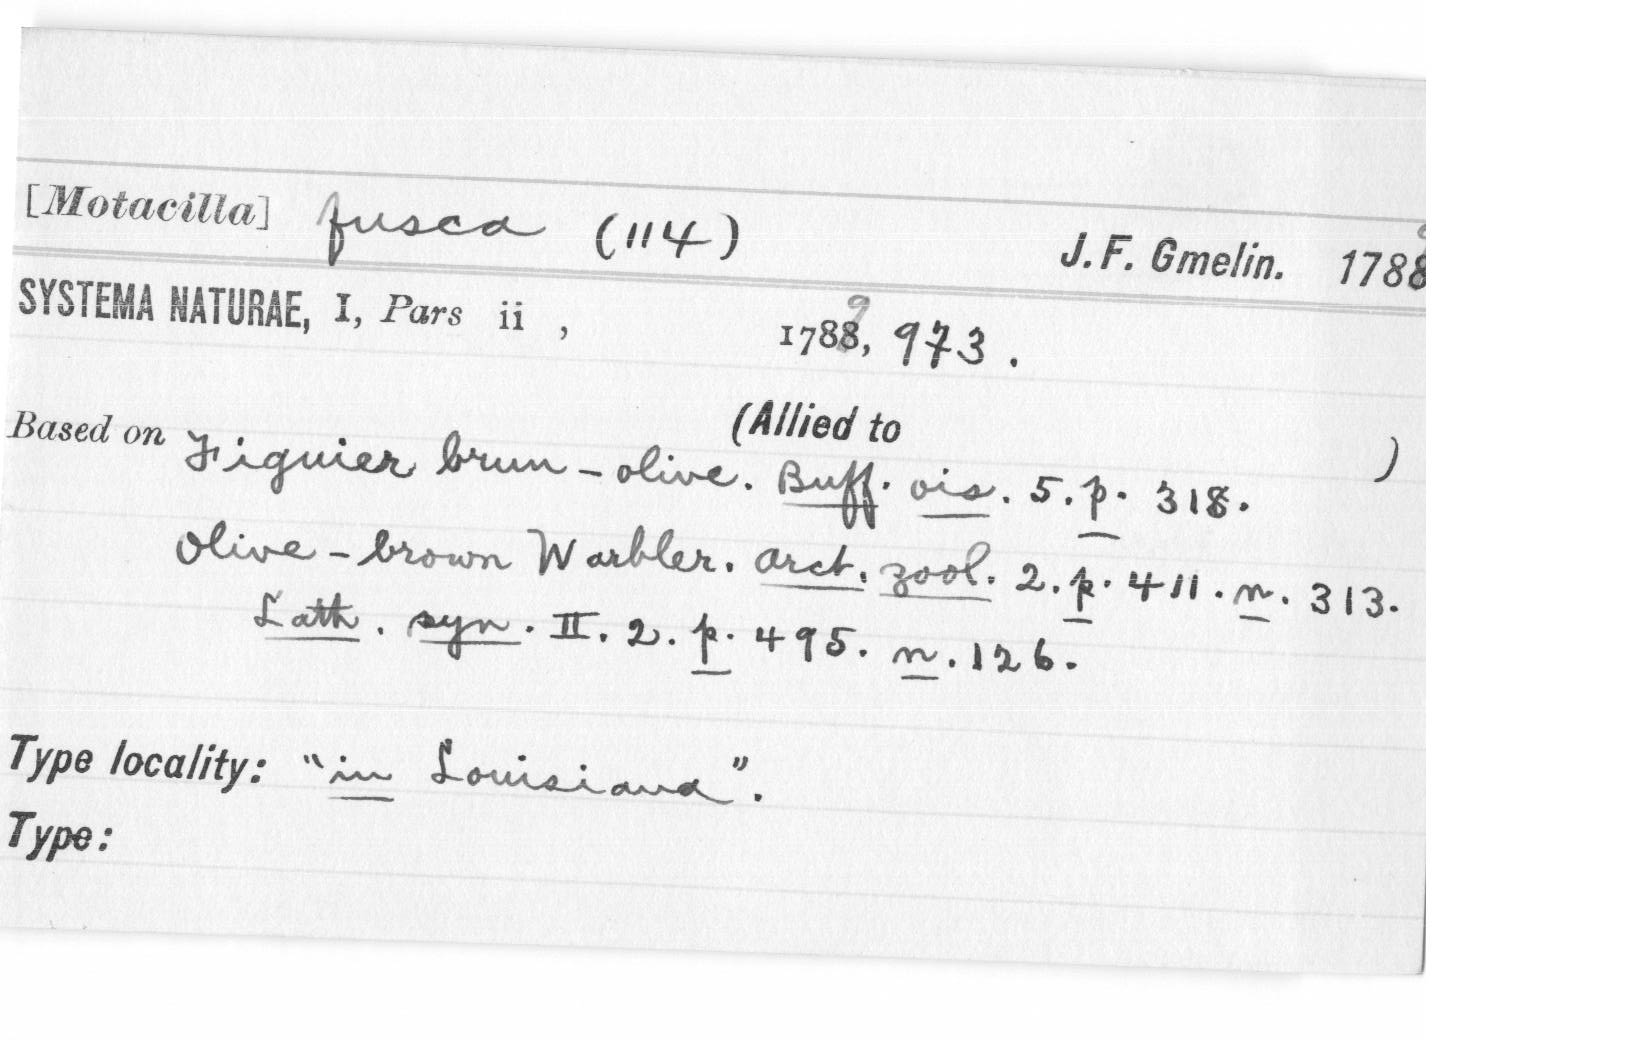 [Motacilla] fusca (114)
J. F. Gmelin. 1788
SYSTEMA NATURAE, I, Pars ii , 1789, 973.
(Allied to )
Based on Figuier brun-olive. Buff. ois. 5. p. 318.
Olive-brown Warbler. Arct. zool. 2. p. 411. n. 313.
Lath. syn. II. 2. p. 495. n. 126.
Type locality: "in Louisiana".
Type: